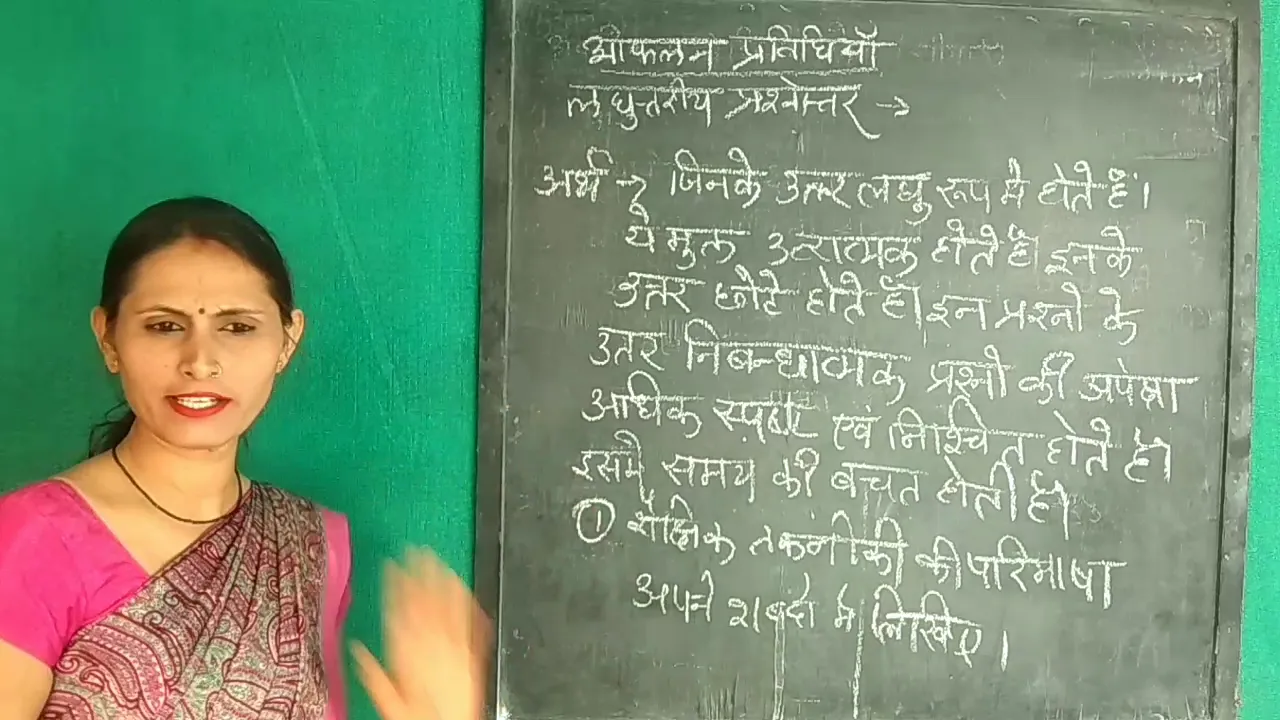 आकलन प्रतिधियाँ
लघुत्तरीय प्रश्नोत्तर →
अर्थ → जिनके उत्तर लघु रूप मे होते हैं।
ये मुल्त उत्तरात्मक होते है। इनके
उत्तर छोटे होते है। इन प्रश्नो के
उतर निबन्धात्मक प्रश्नो की अपेक्षा
अधिक स्पष्ट एवं निश्चित होते है।
इसमे समय की बचत होती है।
① शैक्षिक तकनीकी की परिभाषा
अपने शब्दो मे लिखिए।